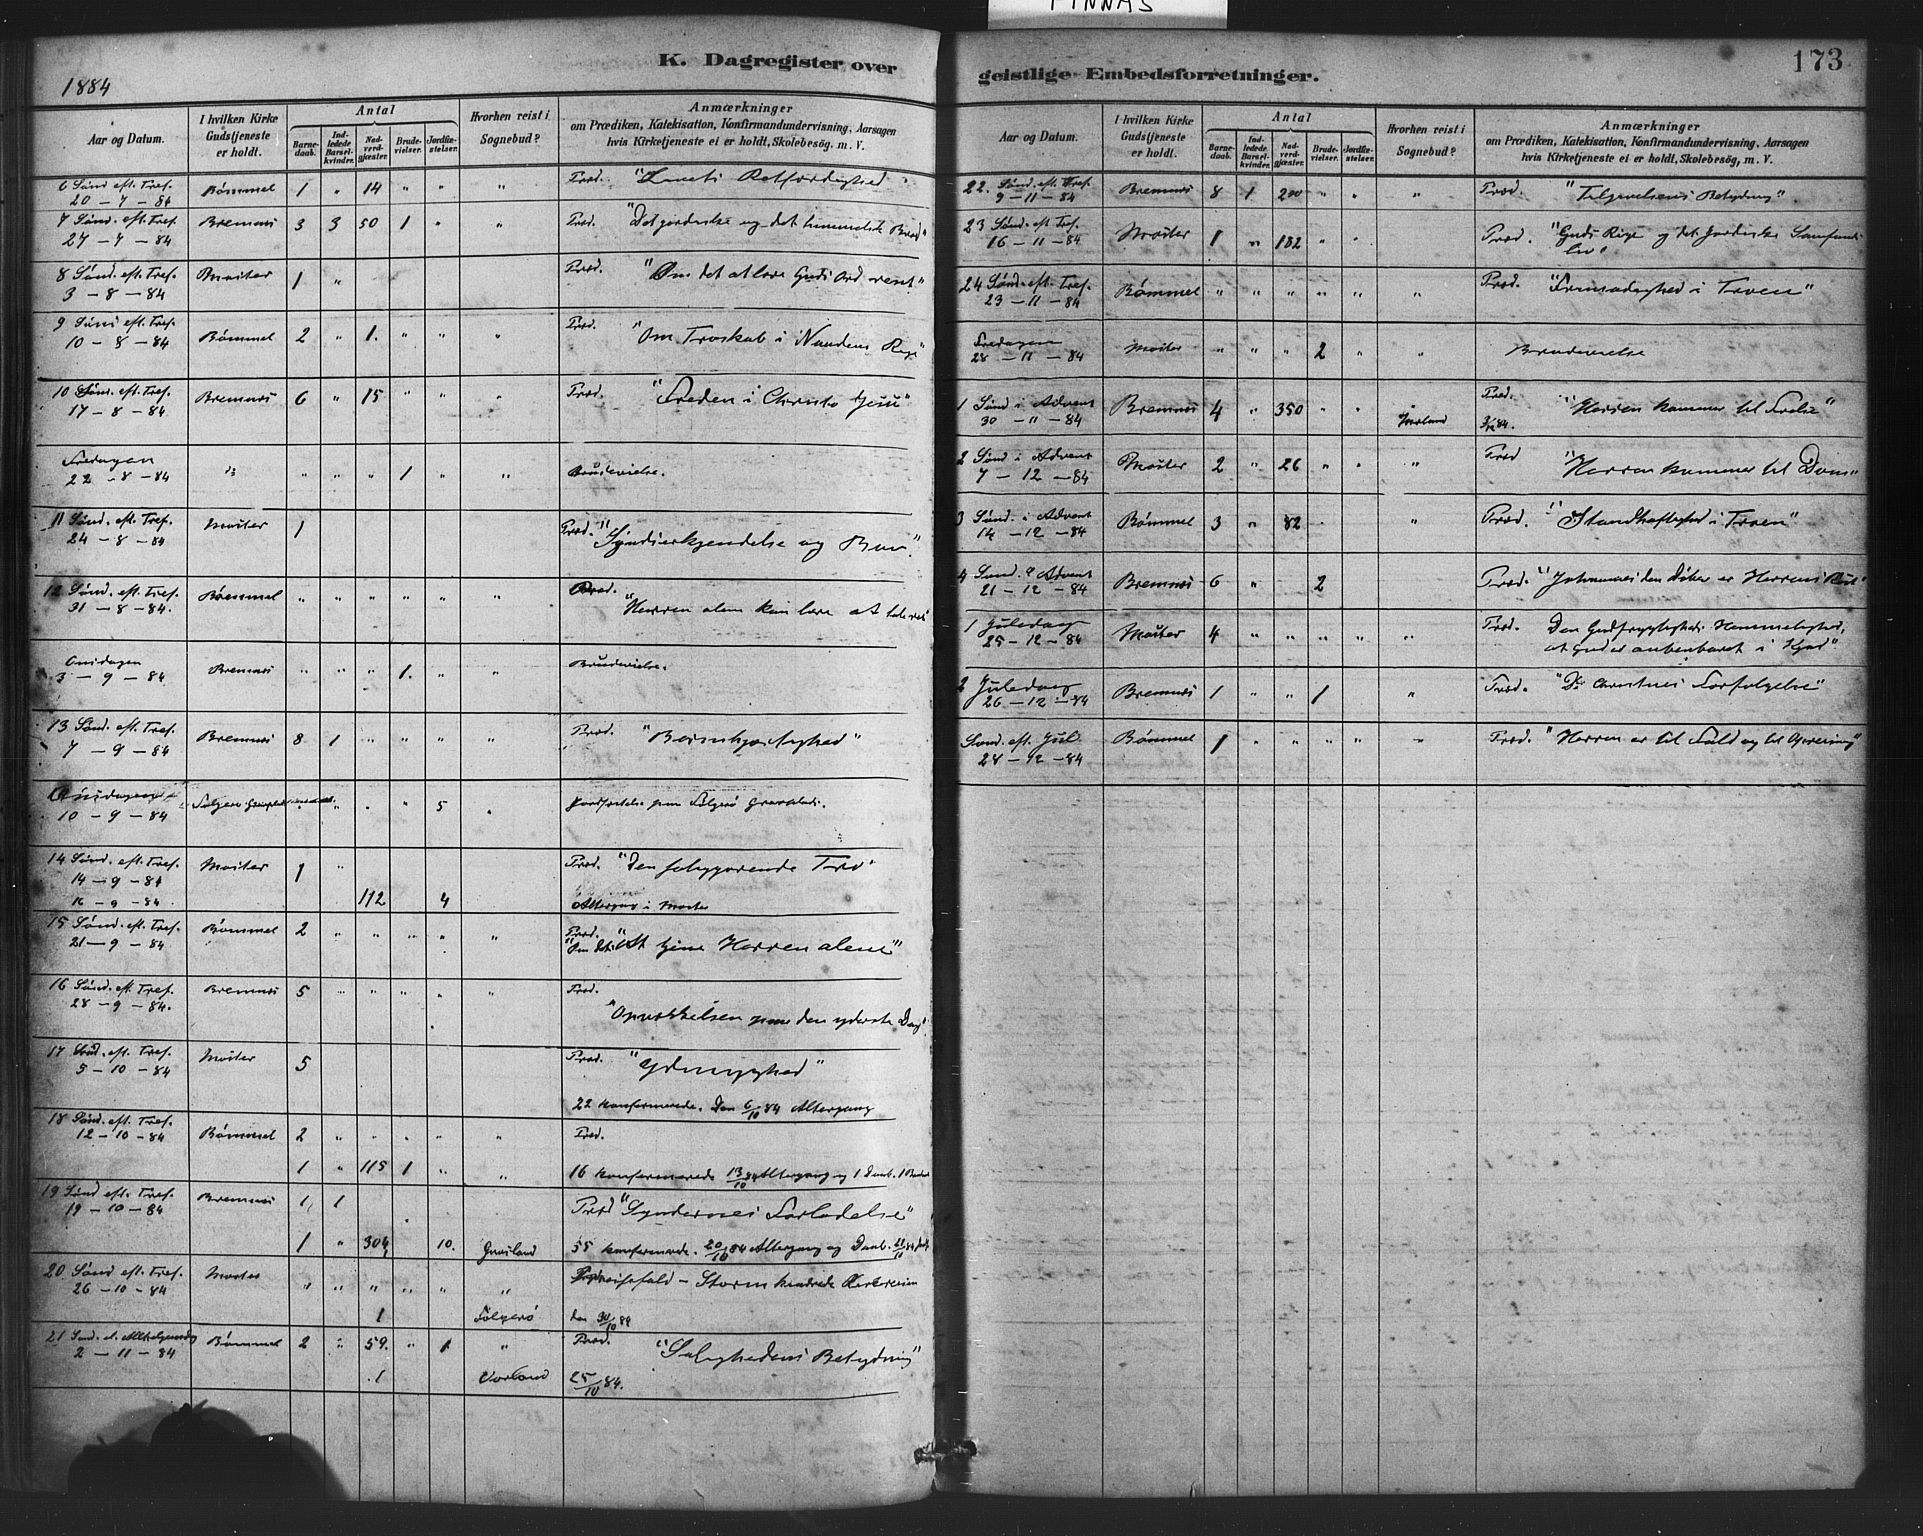 FINNÅS
1884
K. Dagregister over
Aar og Datum.
I hvilken Kirke Gudstjeneste er holdt.
Antal
Barnedaab.
Indledede Barselkvinder.
Nadverdgjæster.
Brudevielser.
Jordfæstelser.
Hvorhen reist i Sognebud?
Anmærkninger
om Prædiken, Katekisation, Konfirmandundervisning, Aarsagen
hvis Kirketjeneste ei er holdt, Skolebesög, m. V.
6 Sønd. eft. Tref. Bømmel 1 " 14 " " " Præd. Retfærdighed
20 – 7 – 84
7 Sønd. eft. Tref. Bremnæs 3 3 50 1 " " Præd. "Det jordiske og det himmelske Brød"
27 – 7 – 84
8 Sønd. eft. Tref. Moster 1 " Præd. "Om det at lære Guds Ord rent"
3 – 8 – 84
9 Sønd. eft. Tref. Bømmel 2 " 1. " " " Præd. "Om Troskab i Naadens Rige"
10 – 8 – 84
10 Sønd. eft. Tref. Bremnæs 6 " 15 " " " Præd. "Freden i Christo Jesu"
17 – 8 – 84
Fredagen do " " " 1 " " Brudevielse.
22 – 8 – 84
11 Sønd. eft. Tref. Moster 1 Præd. "Syndserkjendelse og Bøn".
24 – 8 – 84
12 Sønd. eft. Tref. Bømmel " " " " " " Præd.
31 – 8 – 84. "Herren alene kan lære at tale ret"
Onsdagen Bremnæs " " " 1. " " Brudevielse.
3 – 9 – 84
13 Sønd. eft. Tref. Bremnæs 8 1 " " " " Præd. "Barmhjertighed"
7 – 9 – 84
Onsdagen " " " 5 " Jordfæstelse paa Folgerø Gravplads.
10 – 9 – 84
14 Sønd. eft. Tref. Moster 1 " Præd. "Den saliggjørende Tro"
14 – 9 – 84
16 – 9 – 84. 112 4 Altergang i Moster
15 Sønd. eft. Tref. Bømmel 2 " " " " " Præd.
21 – 9 – 84 "Om det: At tjene Herren alene"
16 Sønd. eft. Tref. Bremnæs 5 " " " " Præd.
28 – 9 – 84. "Opvækkelsen paa den yderste Dag"
17 Sønd. eft. Tref. Moster 5 Præd. "Ydmyghed"
5 – 10 – 84
22 konfirmerede. Den 6/10 84 Altergang
18 Sønd. eft. Tref. Bømmel 2 " " " " " Præd.
12 – 10 – 84
1 " 115 1 " " 16 konfirmerede 13/10 84 Altergang og 1 Daab. 1
19 Sønd. eft. Tref. Bremnæs 1 1 Præd "Syndernes Forladelse"
19 – 10 – 84
1 " 304 10. 55 konfirmerede. 20/10 84 Altergang og Daab.
20 Sønd eft. Tref. Moster " " " " " " Storm hindrede
26 – 10 – 84
1 Folgerø den 30/10 84
21 Sønd. Bømmel 2 " 59. " 1 " Præd. "Salighedens Betydning"
2 – 11 – 84
1 Vorland 25/10 84.
173
geistlige Embedsforretninger.
Aar og Datum.
I hvilken Kirke Gudstjeneste er holdt.
Antal
Barnedaab.
Indledede Barselkvinder.
Nadverdgjæster.
Brudevielser.
Jordfæstelser.
Hvorhen reist i Sognebud?
Anmærkninger
om Prædiken, Katekisation, Konfirmandundervisning, Aarsagen
hvis Kirketjeneste ei er holdt, Skolebesög, m. V.
22. Sønd. eft. Tref. Bremnæs 8 1 200 " " " Præd. "Tilgivelsens Betydning".
9 – 11 – 84
23 Sønd. eft. Tref. Moster 1 " 182 " " Præd. "Guds Rige og det jordiske Samfunds-
16 – 11 – 84 liv".
24 Sønd. eft. Tref. Bømmel " " " " " " Præd. "Frimodighed i Troen"
23 – 11 – 84
Fredagen Moster " " " 2 " " Brudevielse
28 – 11 – 84
1 Sønd i Advent Bremnæs 4 " 350 " " " Præd. "Herren kommer til Frelse"
30 – 11 – 84 3/12 84.
2 Sønd i Advent Moster 2 " 26 " " " Præd "Herren kommer til Dom"
7 – 12 – 84
3 Sønd. i Advent Bømmel 3 " 82 " " Præd. "Standhaftighed i Troen"
14 – 12 – 84
4 Sønd. i Advent Bremnæs 6 " 2 Præd. "Johannes den Døber er Herrens
21 – 12 – 84
1 Juledag Moster 4 " " " " " Præd. Den Gudfrygtigheds Hemmelighed,
25 – 12 – 84 at Gud er aabenbaret i Kjød"
2 Juledag Bremnæs 1 " " 1 " Præd. "De Christnes Forfølgelse"
26 – 12 – 84
Sønd. eft. Jul Bømmel 1 " " " " " Præd. "Herren er til Fald og til Opreisning"
28 – 12 – 84